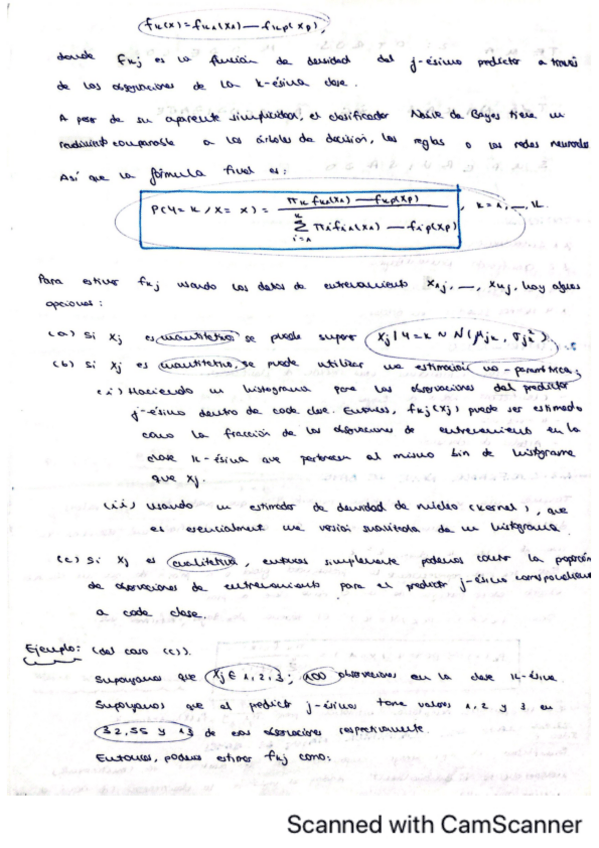 fk(x) = fk1(x1) — fkp(xp),
donde fkj es la función de densidad del j-ésimo predictor a través
de las observaciones de la k-ésima clase.
A pesar de su aparente simplicidad, el clasificador Naive de Bayes tiene un
rendimiento comparable a los árboles de decisión, las reglas o las redes neuronales
Así que la fórmula final es:
P(Y = k / X = x) = πk fk1(x1) — fkp(xp) / Σ(i=1, K) πi fi1(x1) — fip(xp), k = 1, —, K.
Para estimar fkj usando los datos de entrenamiento x1j, —, xnj, hay algunas
opciones:
(a) Si Xj es cuantitativa se puede suponer Xj / Y = k ~ N(μjk, σj²).
(b) Si Xj es cuantitativa, se puede utilizar una estimación no-paramétrica:
(i) Haciendo un histograma para las observaciones del predictor
j-ésimo dentro de cada clase. Entonces, fkj(xj) puede ser estimado
como la fracción de las observaciones de entrenamiento en la
clase k-ésima que pertenecen al mismo bin de histograma
que xj.
(ii) Usando un estimador de densidad de núcleo (kernel), que
es esencialmente una versión suavizada de un histograma.
(c) Si Xj es cualitativa, entonces simplemente podemos contar la proporción
de observaciones de entrenamiento para el predictor j-ésimo correspondiente
a cada clase.
Ejemplo: (del caso (c)).
Supongamos que Xj ∈ 1, 2, 3; 100 observaciones en la clase k-ésima.
Supongamos que el predictor j-ésimo toma valores 1, 2 y 3 en
32, 55 y 13 de esas observaciones respectivamente.
Entonces, podemos estimar fkj como:
Scanned with CamScanner